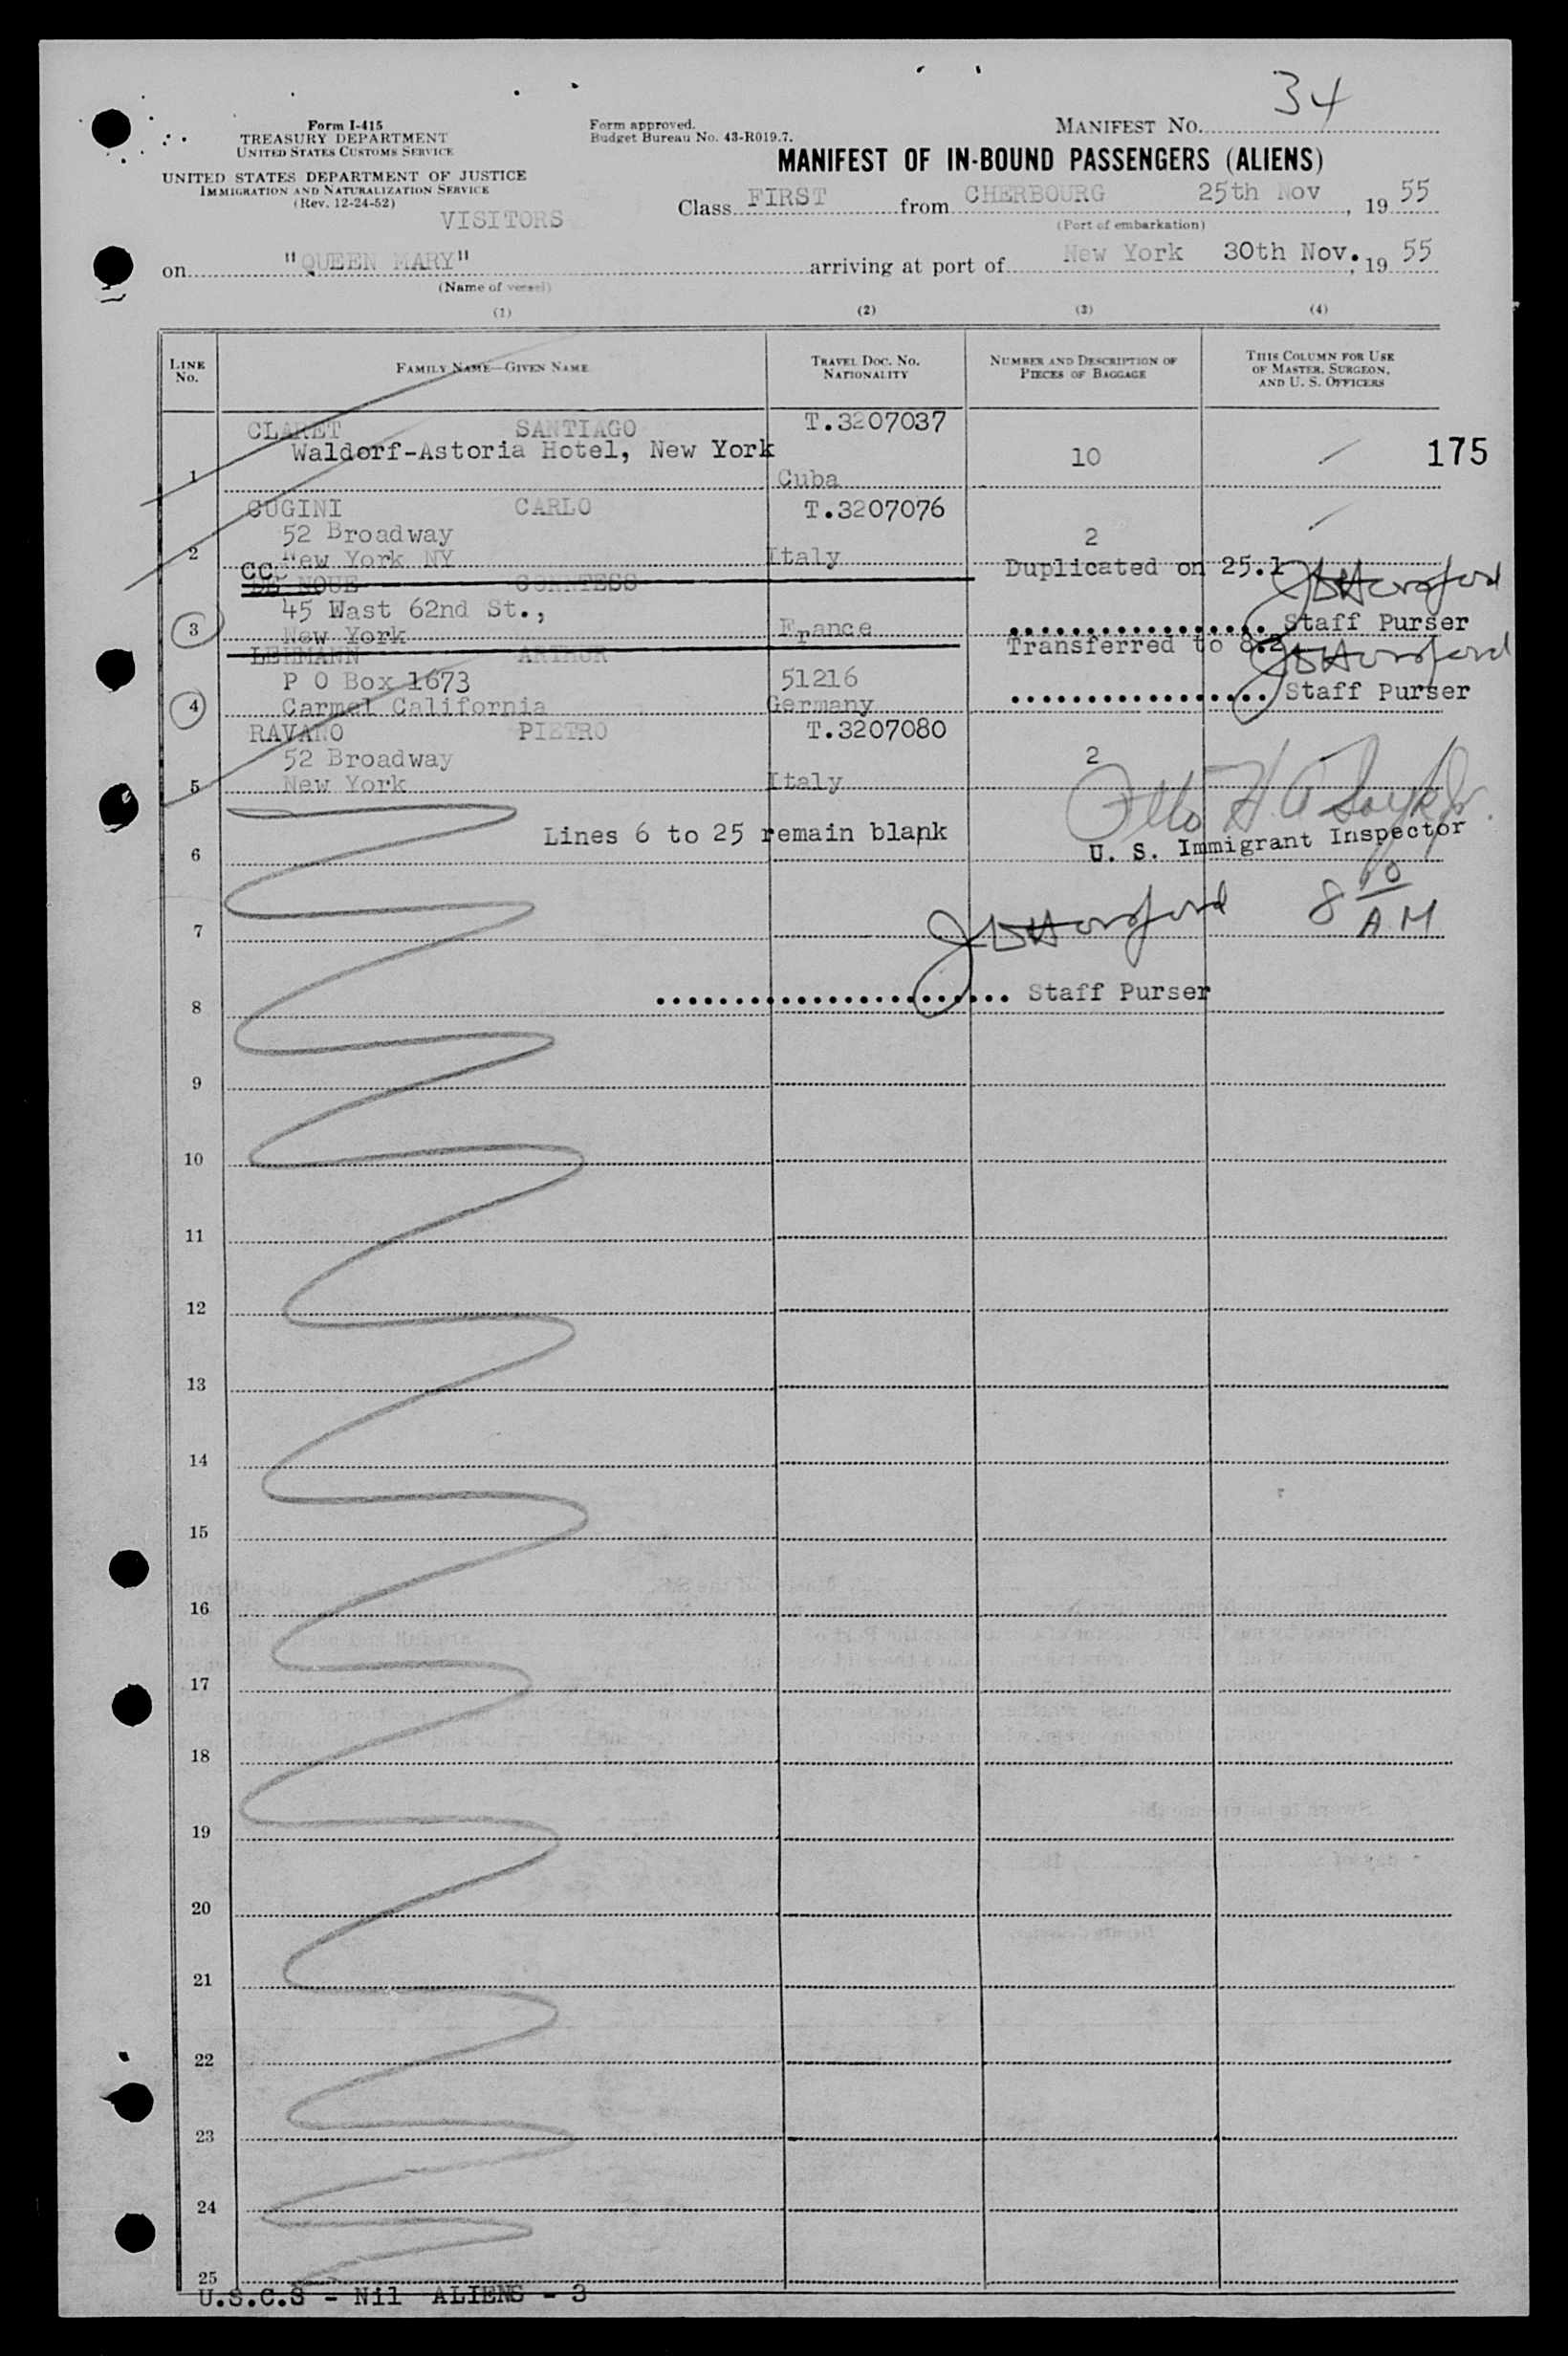 34
Form I-415
TREASURY DEPARTMENT
UNITED STATES CUSTOMS SERVICE
UNITED STATES DEPARTMENT OF JUSTICE
IMMIGRATION AND NATURALIZATION SERVICE
(Rev. 12-24-52)
Form approved.
Budget Bureau No. 43-R019.7.
MANIFEST NO.
MANIFEST OF IN-BOUND PASSENGERS (ALIENS)
VISITORS
Class FIRST from CHERBOURG 25th Nov, 19 55
(Port of embarkation)
on "QUEEN MARY" arriving at port of New York 30th Nov., 19 55
(Name of vessel)
(1) (2) (3) (4)
LINE NO.
FAMILY NAME—GIVEN NAME
TRAVEL DOC. NO.
NATIONALITY
NUMBER AND DESCRIPTION OF
PIECES OF BAGGAGE
THIS COLUMN FOR USE
OF MASTER, SURGEON,
AND U. S. OFFICERS
CLARET SANTIAGO T.3207037
Waldorf-Astoria Hotel, New York 10 175
1 Cuba
CUGINI CARLO T.3207076
52 Broadway 2
2 New York NY Italy
CC. DE NOUE COMTESS Duplicated on 25.1
45 East 62nd St.,
3 New York France Staff Purser
LEHMANN ARTHUR Transferred to 8.2
P O Box 1673 51216
4 Carmel California Germany Staff Purser
RAVANO PIETRO T.3207080
52 Broadway 2
5 New York Italy
Lines 6 to 25 remain blank
6
U. S. Immigrant Inspector
8 10 AM
7
Staff Purser
8
9
10
11
12
13
14
15
16
17
18
19
20
21
22
23
24
25
U.S.C.S - Nil ALIENS - 3